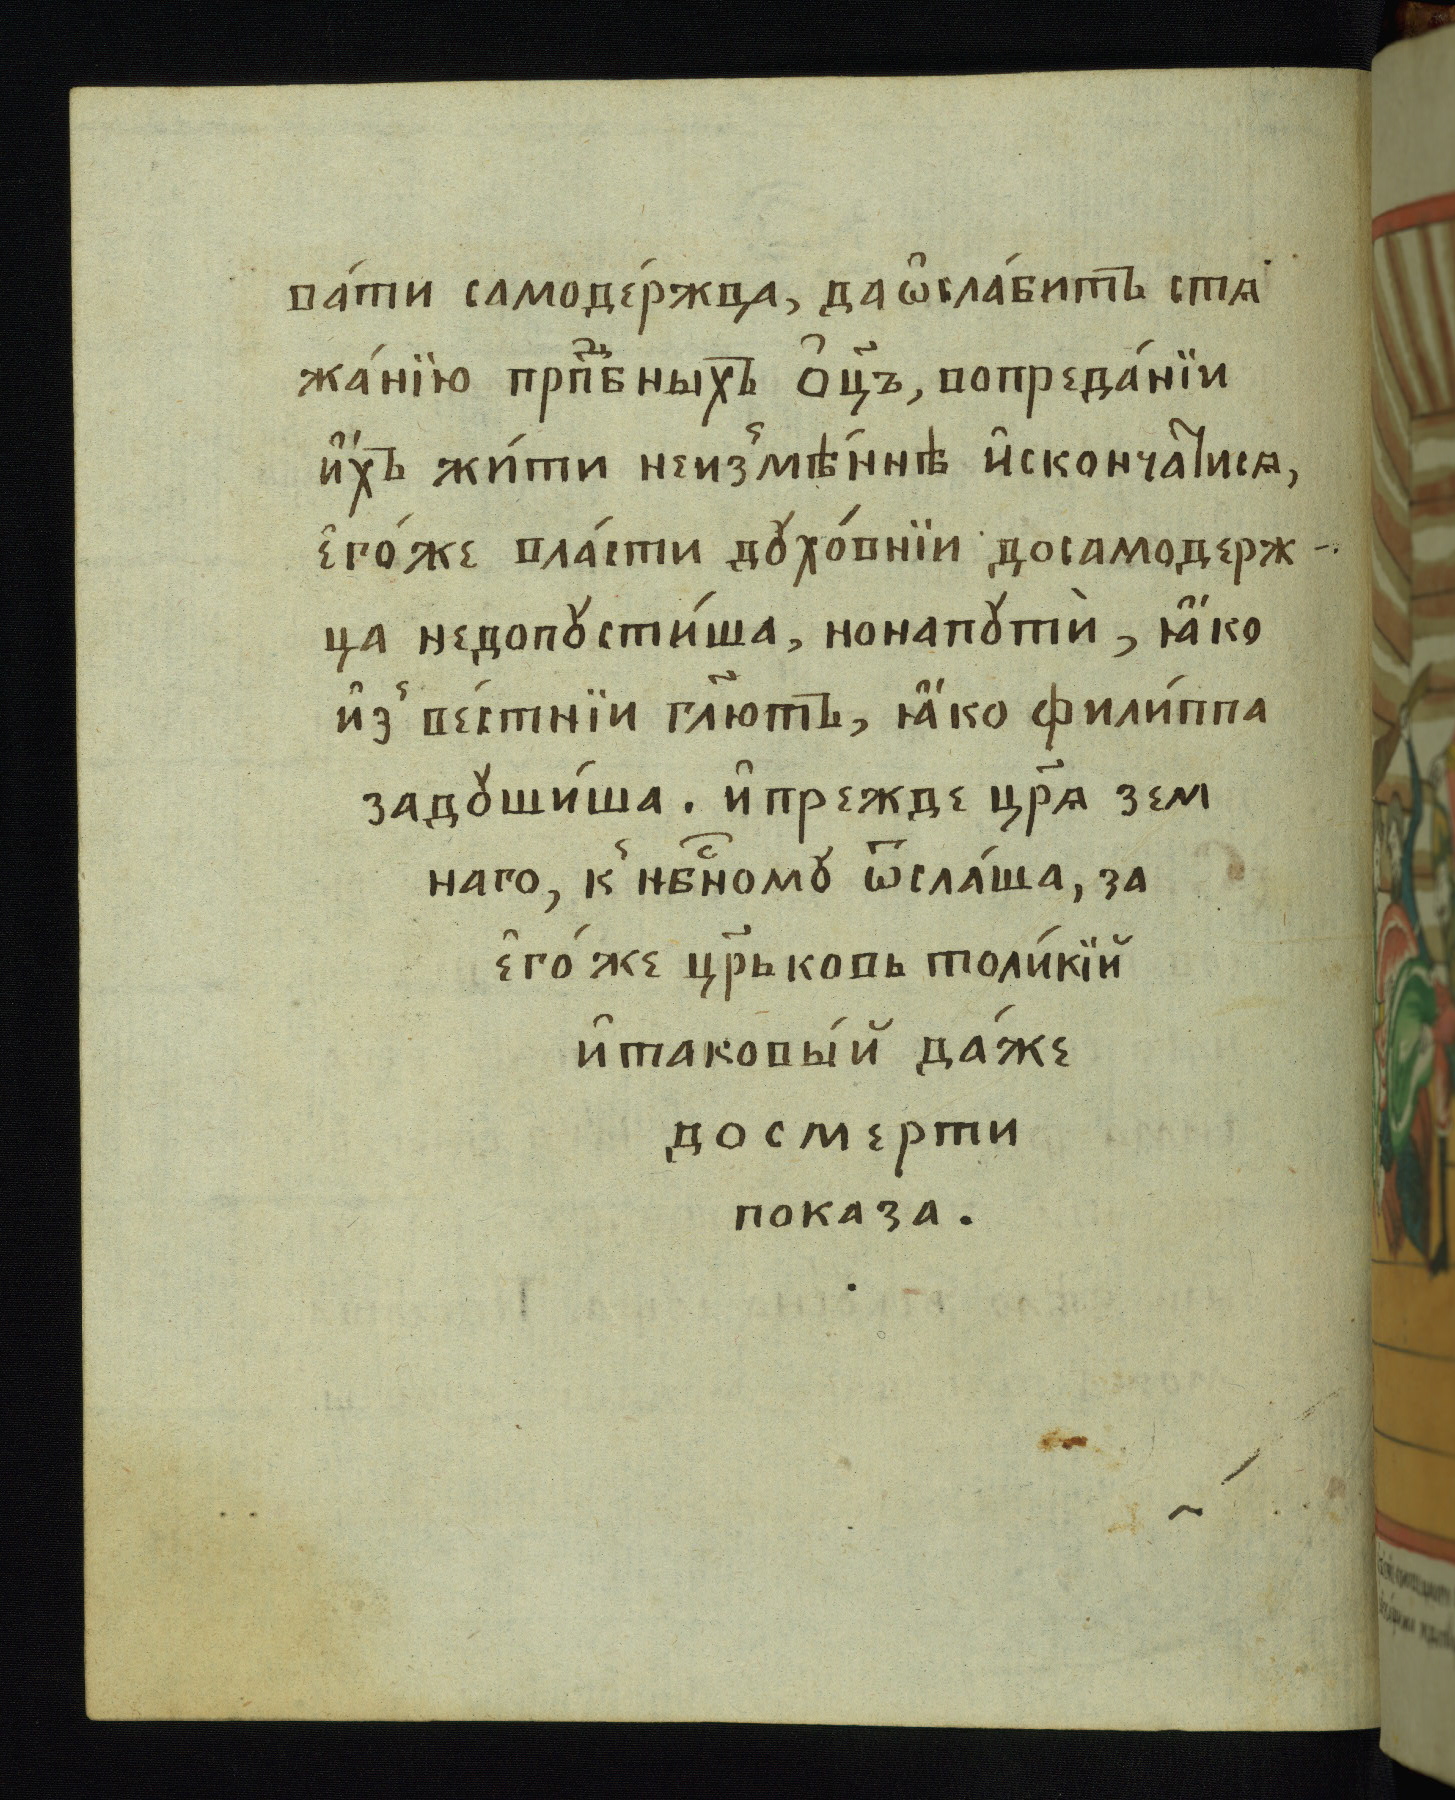 ва́ти самоде́ржца, даѡ҆сла́битъ стѧ
жа́нїю прпⷣбныхъ ѻ҆ц҃ъ, вопреда́нїи
и҆́хъ жи́ти неиз̾мѣ́ннѣ и҆сконча́тисѧ,
є҆го́же вла́сти дꙋхо́внїи досамодерж-
ца недопꙋсти́ша, нонапꙋтѝ, ꙗ҆́ко
и҆з̾ве́стнїи гл҃ютъ, ꙗ҆́ко фили́ппа
задꙋши́ша. и҆прежде цр҃ѧ зем
наго, к̾ нбⷭ҇номꙋ ѿсла́ша, за
є҆го́же цр҃ьковь толи́кїй
и҆таковы́й да́же
досмерти
показа.